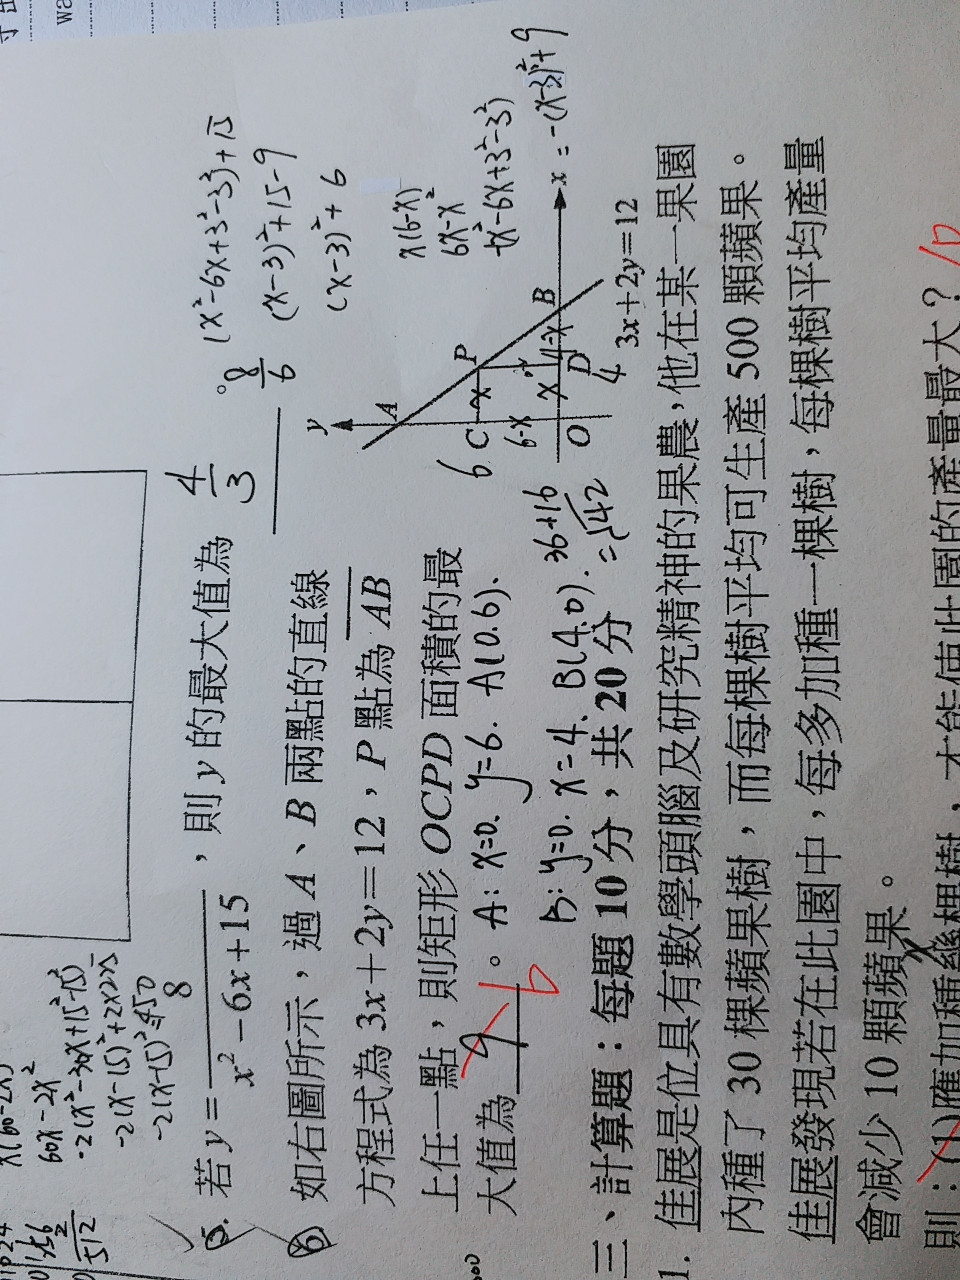 x(60-2x)
60x-2x²
-2(x²-30x+15²-15²)
-2(x-15)²+2×225
-2(x-15)²+450
512
5. 若 y = 8 / x²-6x+15 ，則 y 的最大值為 4/3 。
8/6
(x²-6x+3²-3²)+15
(x-3)²+15-9
(x-3)²+6
6. 如右圖所示，過 A、B 兩點的直線
方程式為 3x+2y=12，P 點為 AB
上任一點，則矩形 OCPD 面積的最
大值為 9 。
6
A: x=0. y=6. A(0.6).
B: y=0. x=4. B(4.0).
36+16
=√42
y
A
6
C
x
P
6-x
x
4-x
B
O
D
4
x
3x+2y=12
x(6-x)
6x-x²
-(x²-6x+3²-3²)
=-(x-3)²+9
三、計算題：每題 10 分，共 20 分
1. 佳展是位具有數學頭腦及研究精神的果農，他在某一果園
內種了 30 棵蘋果樹，而每棵樹平均可生產 500 顆蘋果。
佳展發現若在此園中，每多加種一棵樹，每棵樹平均產量
會減少 10 顆蘋果。
則：(1)應加種幾棵樹，才能使此園的產量最大？